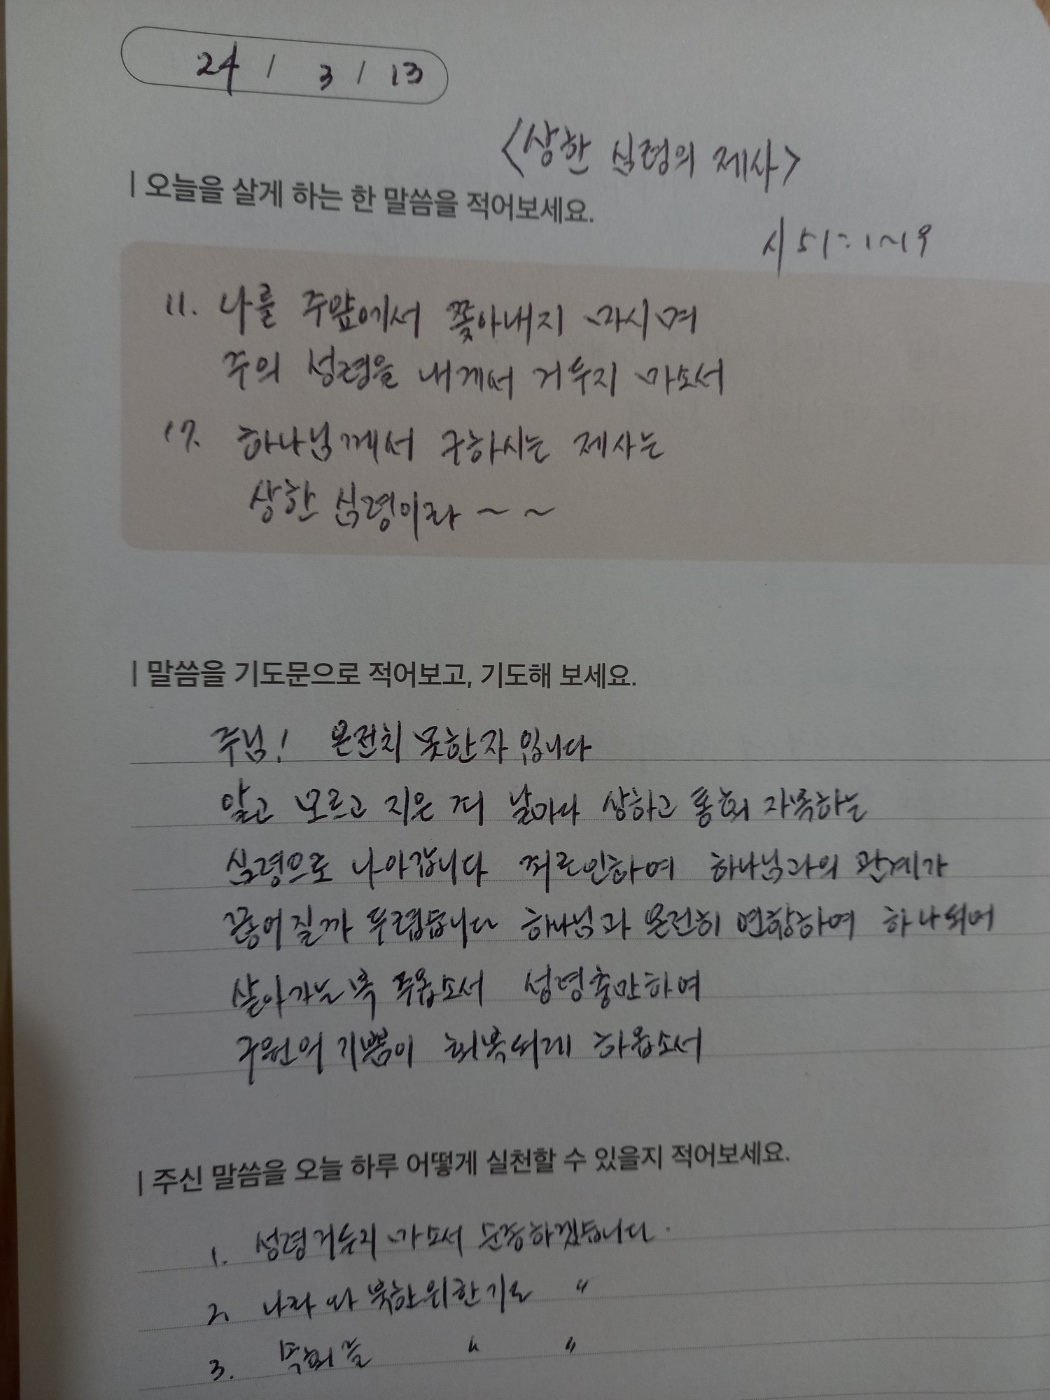 24 / 3 / 13
<상한 심령의 제사>
| 오늘을 살게 하는 한 말씀을 적어보세요.
시 51: 1~19
11. 나를 주앞에서 쫓아내지 마시며
주의 성령을 내게서 거두지 마소서
17. 하나님께서 구하시는 제사는
상한 심령이라 ~ ~
| 말씀을 기도문으로 적어보고, 기도해 보세요.
주님! 온전치 못한자 입니다
알고 모르고 지은 죄 날마다 상하고 통회 자복하는
심령으로 나아갑니다 죄로인하여 하나님과의 관계가
끊어질까 두렵습니다 하나님과 온전히 연합하여 하나되어
살아가는 복 주옵소서 성령충만하여
구원의 기쁨이 회복되게 하옵소서
| 주신 말씀을 오늘 하루 어떻게 실천할 수 있을지 적어보세요.
1. 성령거두지 마소서 순종하겠습니다.
2. 나라와 북한위한기도 〃
3. 목회 〃 〃